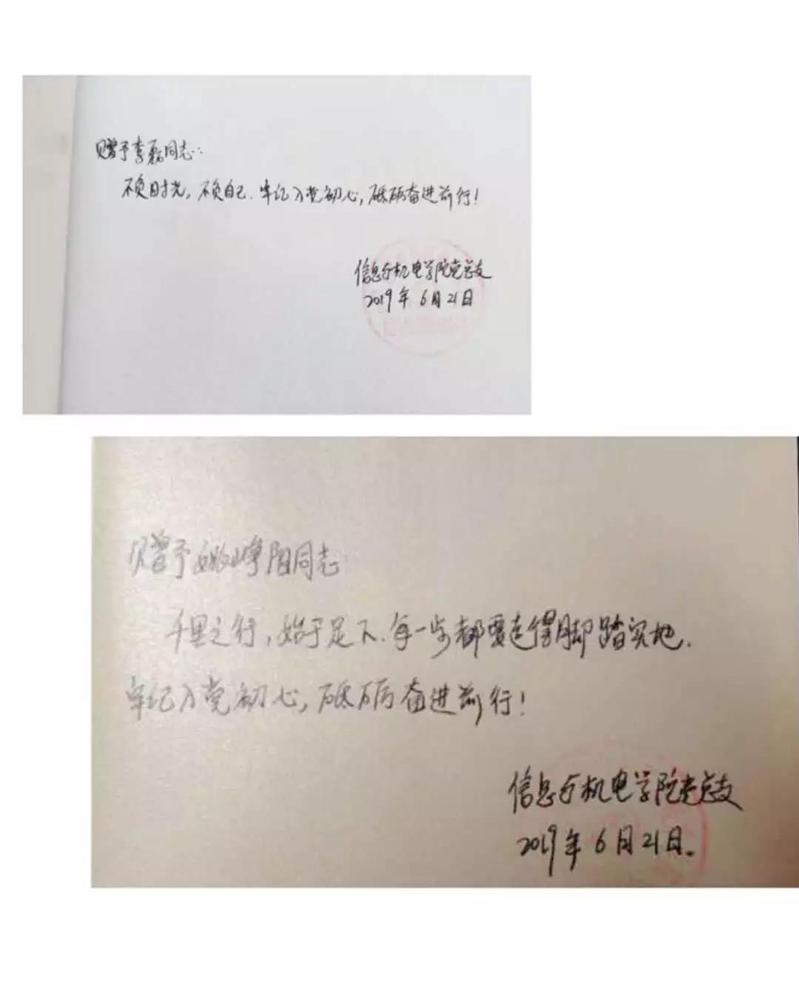 赠予李磊同志：
不负时光，不负自己．牢记入党初心，砥砺奋进前行！
信息与机电学院党总支
2019年6月21日
赠予姚峥阳同志
千里之行，始于足下．每一步都要走得脚踏实地．
牢记入党初心，砥砺奋进前行！
信息与机电学院党总支
2019年6月21日。